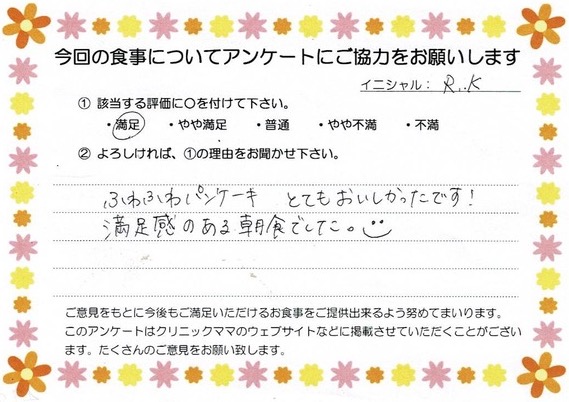 今回の食事についてアンケートにご協力をお願いします
イニシャル： R..K
① 該当する評価に〇を付けて下さい。
・満足 ・やや満足 ・普通 ・やや不満 ・不満
② よろしければ、①の理由をお聞かせ下さい。
ふわふわパンケーキ とてもおいしかったです！
満足感のある朝食でした。
ご意見をもとに今後もご満足いただけるお食事をご提供出来るよう努めてまいります。
このアンケートはクリニックママのウェブサイトなどに掲載させていただくことがござい
ます。たくさんのご意見をお願い致します。